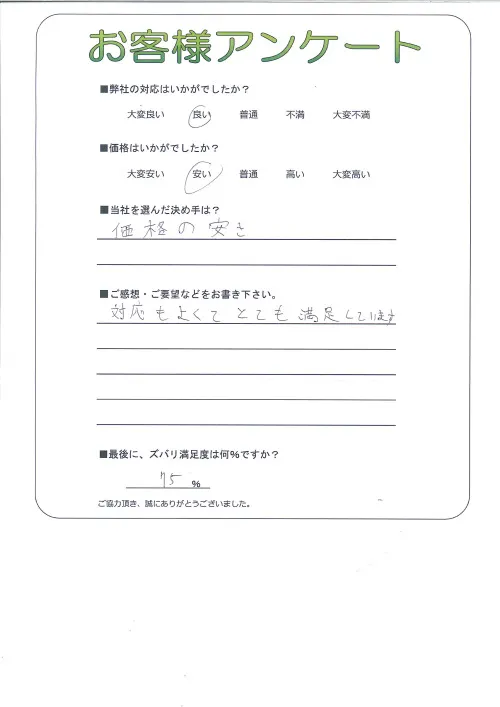 お客様アンケート
■弊社の対応はいかがでしたか？
大変良い 良い 普通 不満 大変不満
■価格はいかがでしたか？
大変安い 安い 普通 高い 大変高い
■当社を選んだ決め手は？
価格の安さ
■ご感想・ご要望などをお書き下さい。
対応もよくてとても満足しています
■最後に、ズバリ満足度は何%ですか？
75 %
ご協力頂き、誠にありがとうございました。